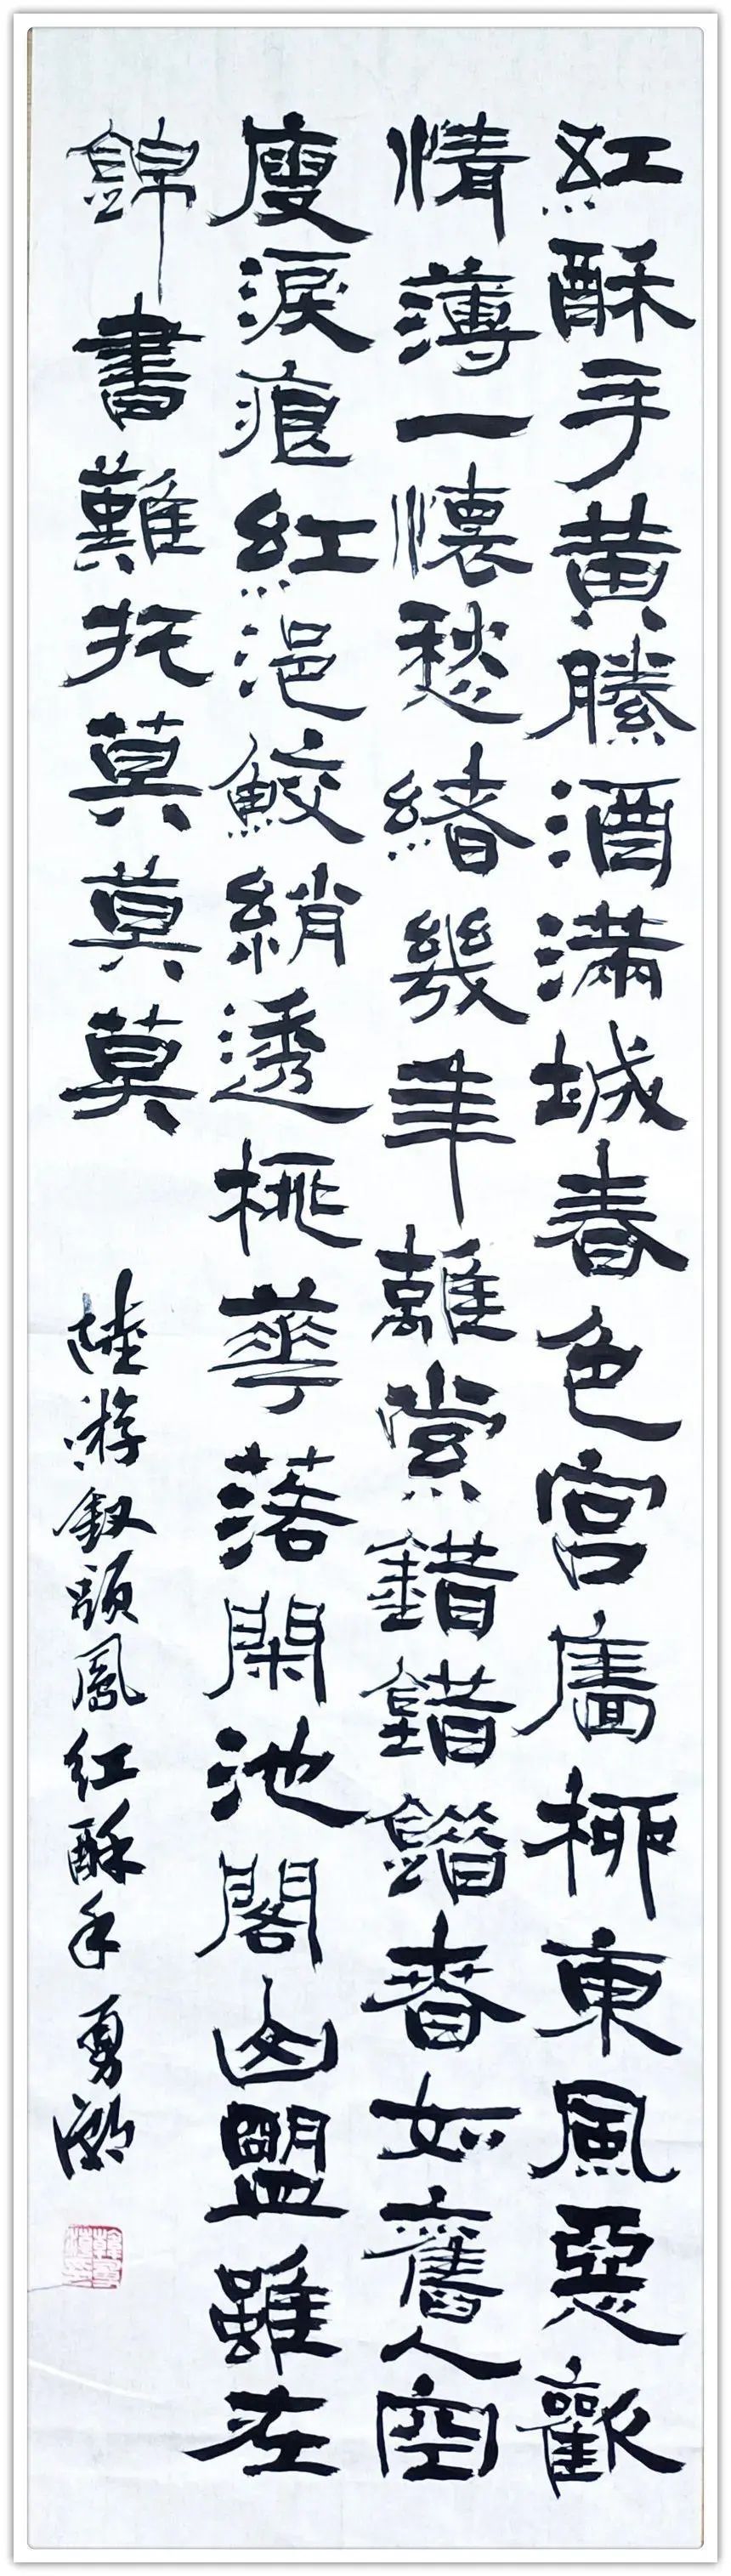 紅酥手黄縢酒滿城春色宮廧柳東風惡歡
情薄一懷愁緒幾年離索錯錯錯春如舊人空
瘦淚痕紅浥鮫綃透桃華落閑池閣山盟雖在
錦書難托莫莫莫 陸游釵頭鳳紅酥手 勇